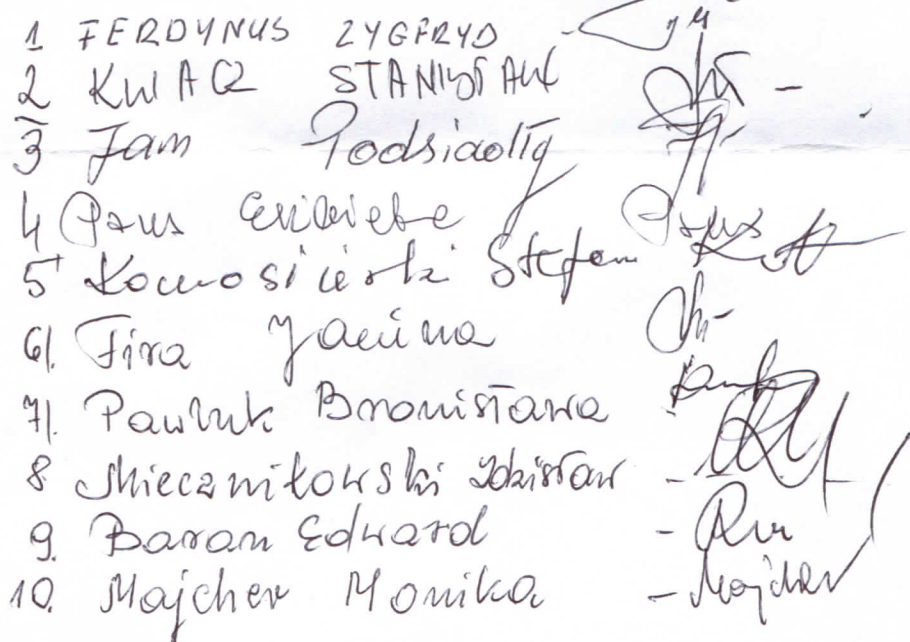 1 FERDYNUS ZYGFRYD
2 KWACZ STANISŁAW
3 Jan Podsiadły
4 Paus Elżbieta
5 Komosiński Stefan
6/. Fira Janina
7/. Pawluk Bronisława
8 Miecznikowski Zdzisław
9. Baran Edward
10. Majcher Monika - Majcher